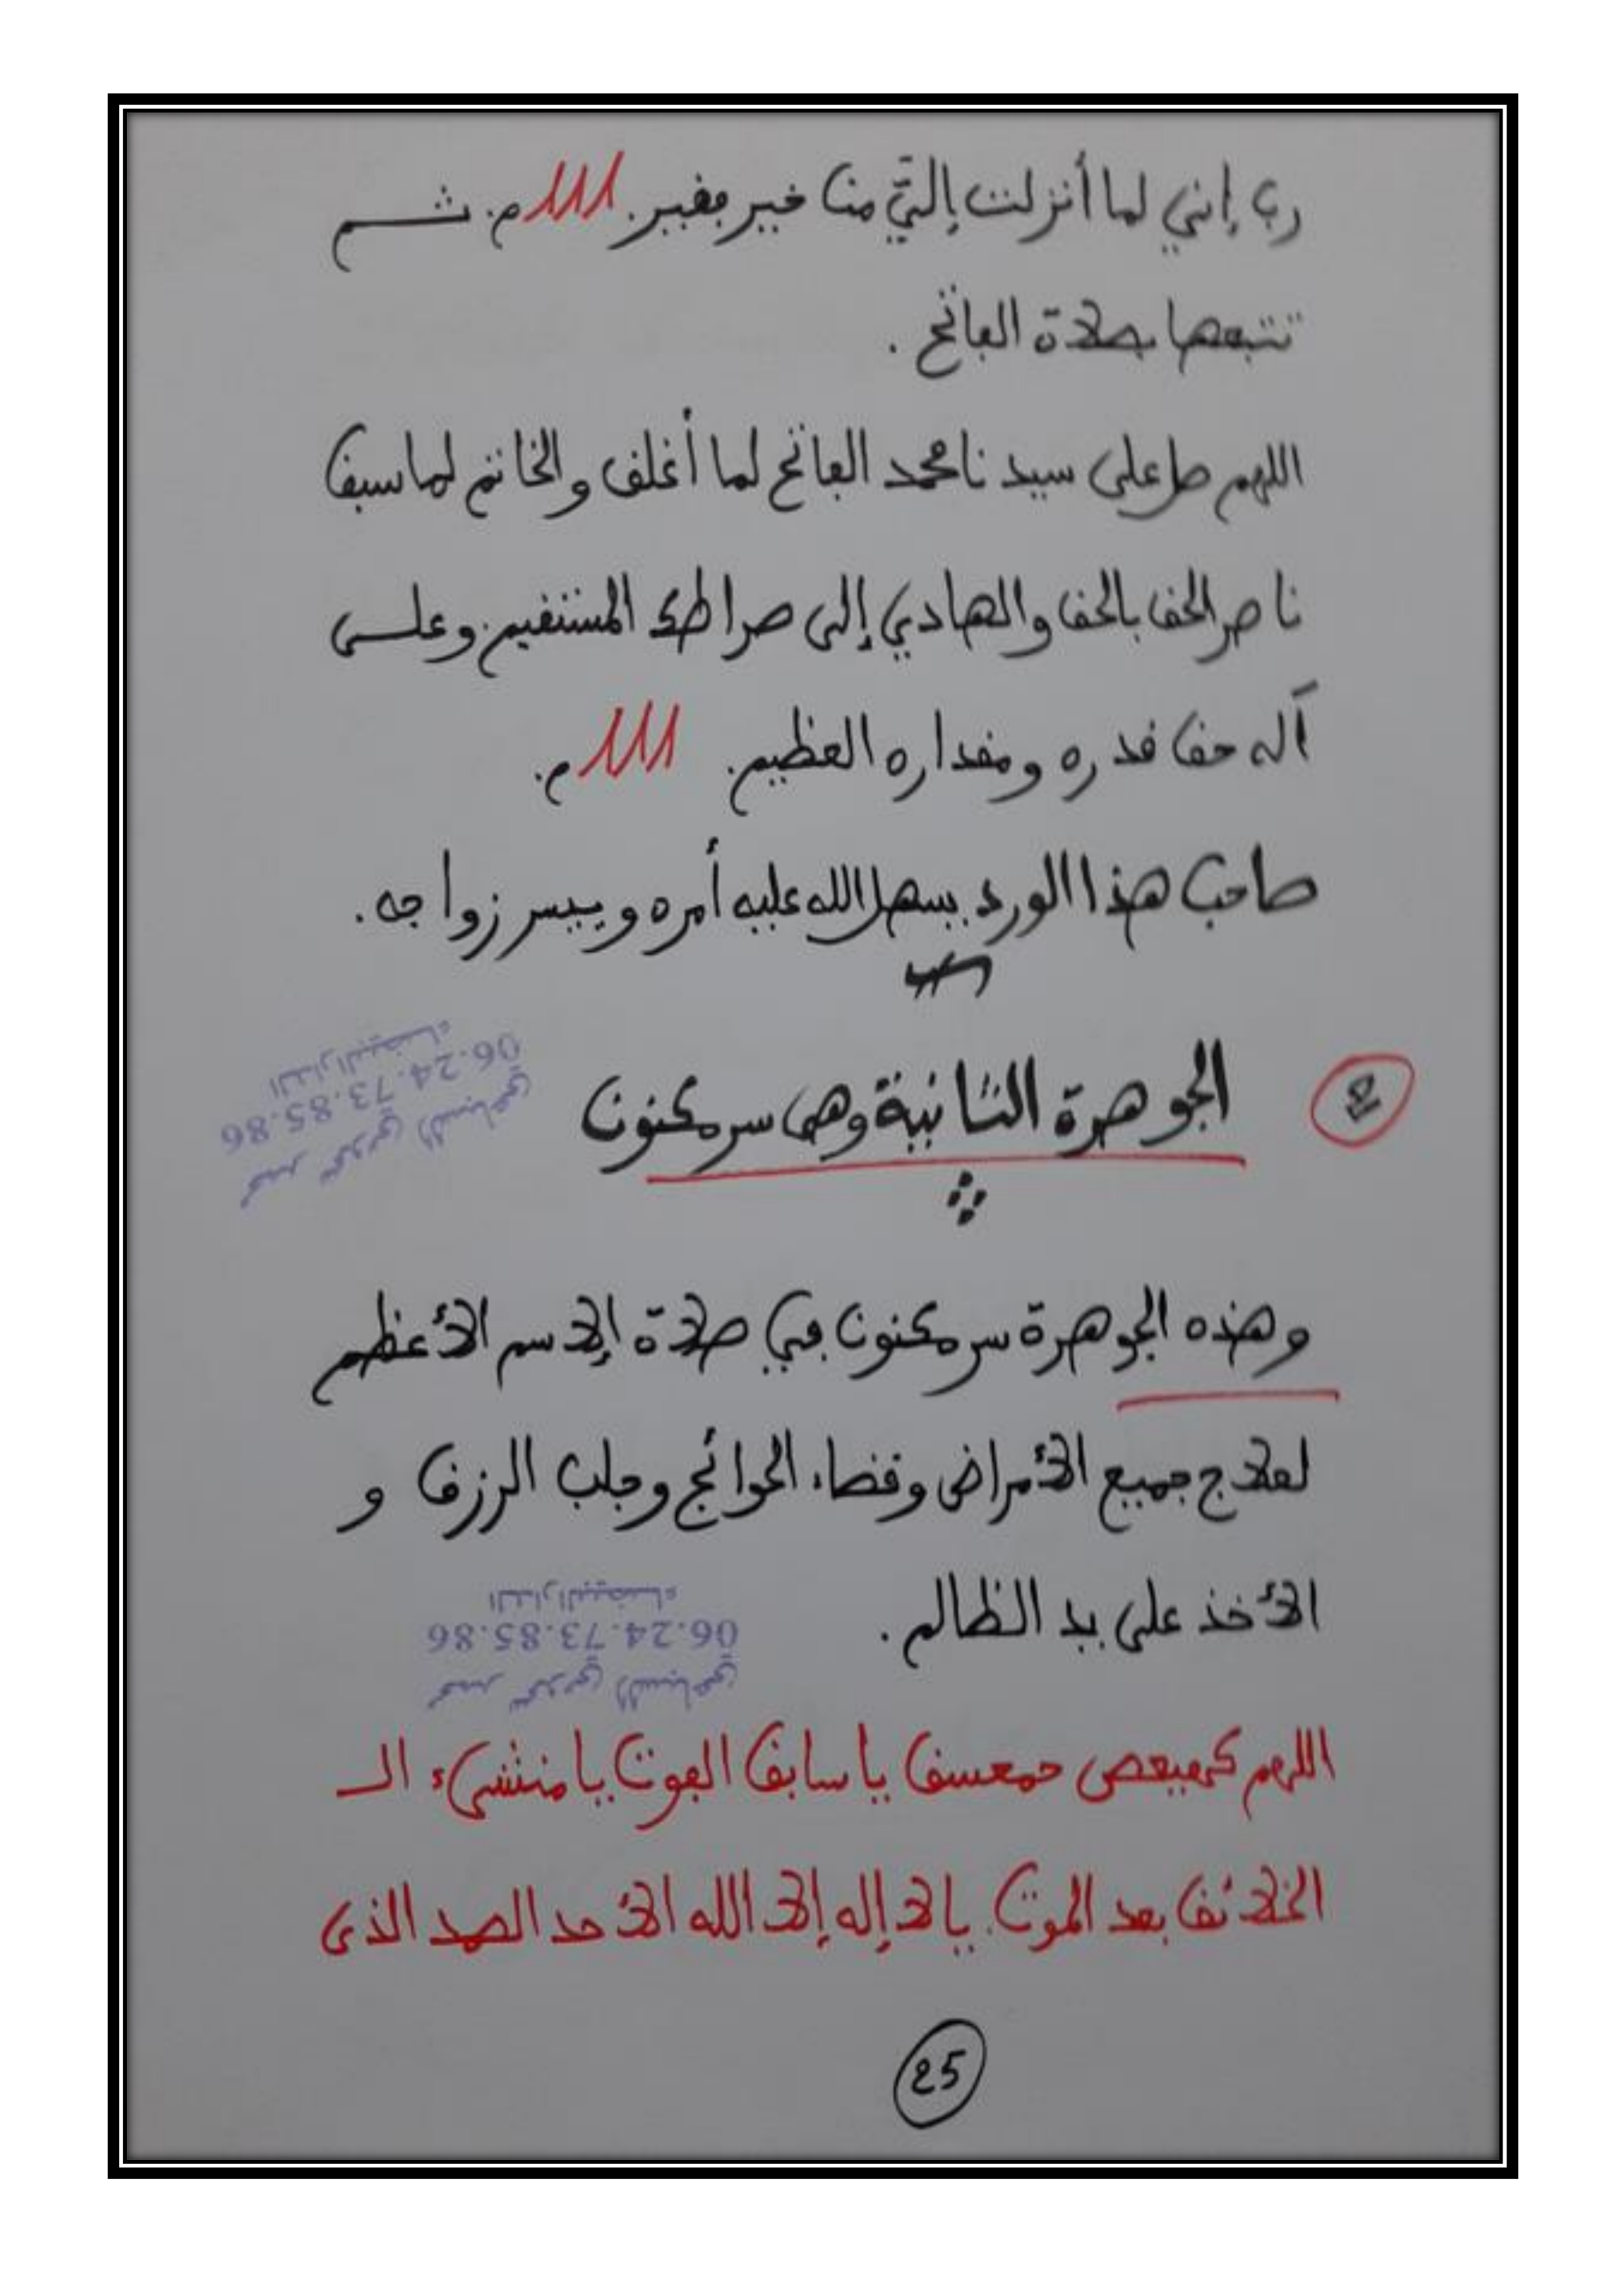 رب إني لما أنزلت إليّ من خير فقير. 111 م. ثم
تتبعها بصلاة الفاتح .
اللهم صل على سيدنا محمد الفاتح لما أغلق والخاتم لما سبق
ناصر الحق بالحق والهادي إلى صراطك المستقيم. وعلى
آله حق قدره ومقداره العظيم. 111 م.
صاحب هذا الورد يسهل الله عليه أمره وييسر زواجه .
الجوهرة الثانية وهي سر مكنون
وهذه الجوهرة سر مكنون في صلاة الإسم الأعظم
لعلاج جميع الأمراض وقضاء الحوائج وجلب الرزق و
الأخذ على يد الظالم .
الدار البيضاء
06.24.73.85.86
اللهم كهيعص حمعسق يا سابق الفوت يا منشىء الـ
الخلائق بعد الموت. يا لا إله إلا الله الأحد الصمد الذي
25